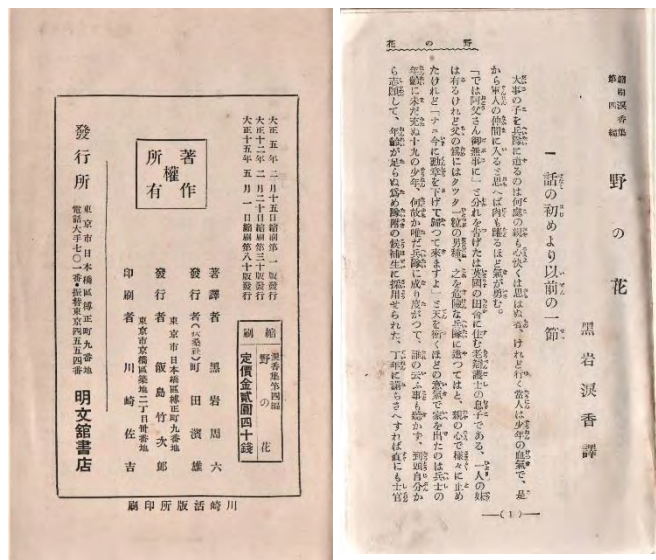 大正五年二月十五日縮刷第一版發行
大正十二年二月二十日縮刷第三十版發行
大正十五年五月一日縮刷第八十版發行
縮刷
涙香集第四編
野の花
定價金貳圓四十錢
著作
權
所有
著譯者 黒岩周六
發行者(扶桑社)町田濱雄
東京市日本橋區博正町九番地
發行者 飯島竹次郎
東京市京橋區築地二丁目卅番地
印刷者 川崎佐吉
發行所
東京市日本橋區博正町九番地
電話大手七〇一番・振特東京四五五四番
明文舘書店
川崎活版所印刷
野の花
縮刷涙香集
第四編
野の花
黒岩涙香譯
一 話の初めより以前の一節
大事の子を兵隊に造るのは何處の親も心快くは思はぬ者、けれど行く當人は少年の血氣で、是
から軍人の仲間に入ると思へば肉も躍るほど氣が勇む。
「では阿父さん御無事に」と分れを告げたは英國の田舎に住む老辯護士の息子である、一人の妹
は有るけれど父の爲にはタッタ一粒の男種、之を危險な兵隊に造つてはと、親の心で様々に止め
たけれど「ナニ今に勳章を下げて歸つて來ますよ」と天を衝くほどの意氣で家を出たのは兵士の
年齡に未だ充ぬ十九の少年、何故か唯だ兵隊に成り度がつて、誰の云ふ事も聽かず、到頭自分か
ら志願して、年齡が足らぬ爲め隊附の候補生に採用せられた、丁年に滿ちさへすれば直にも士官
(1)